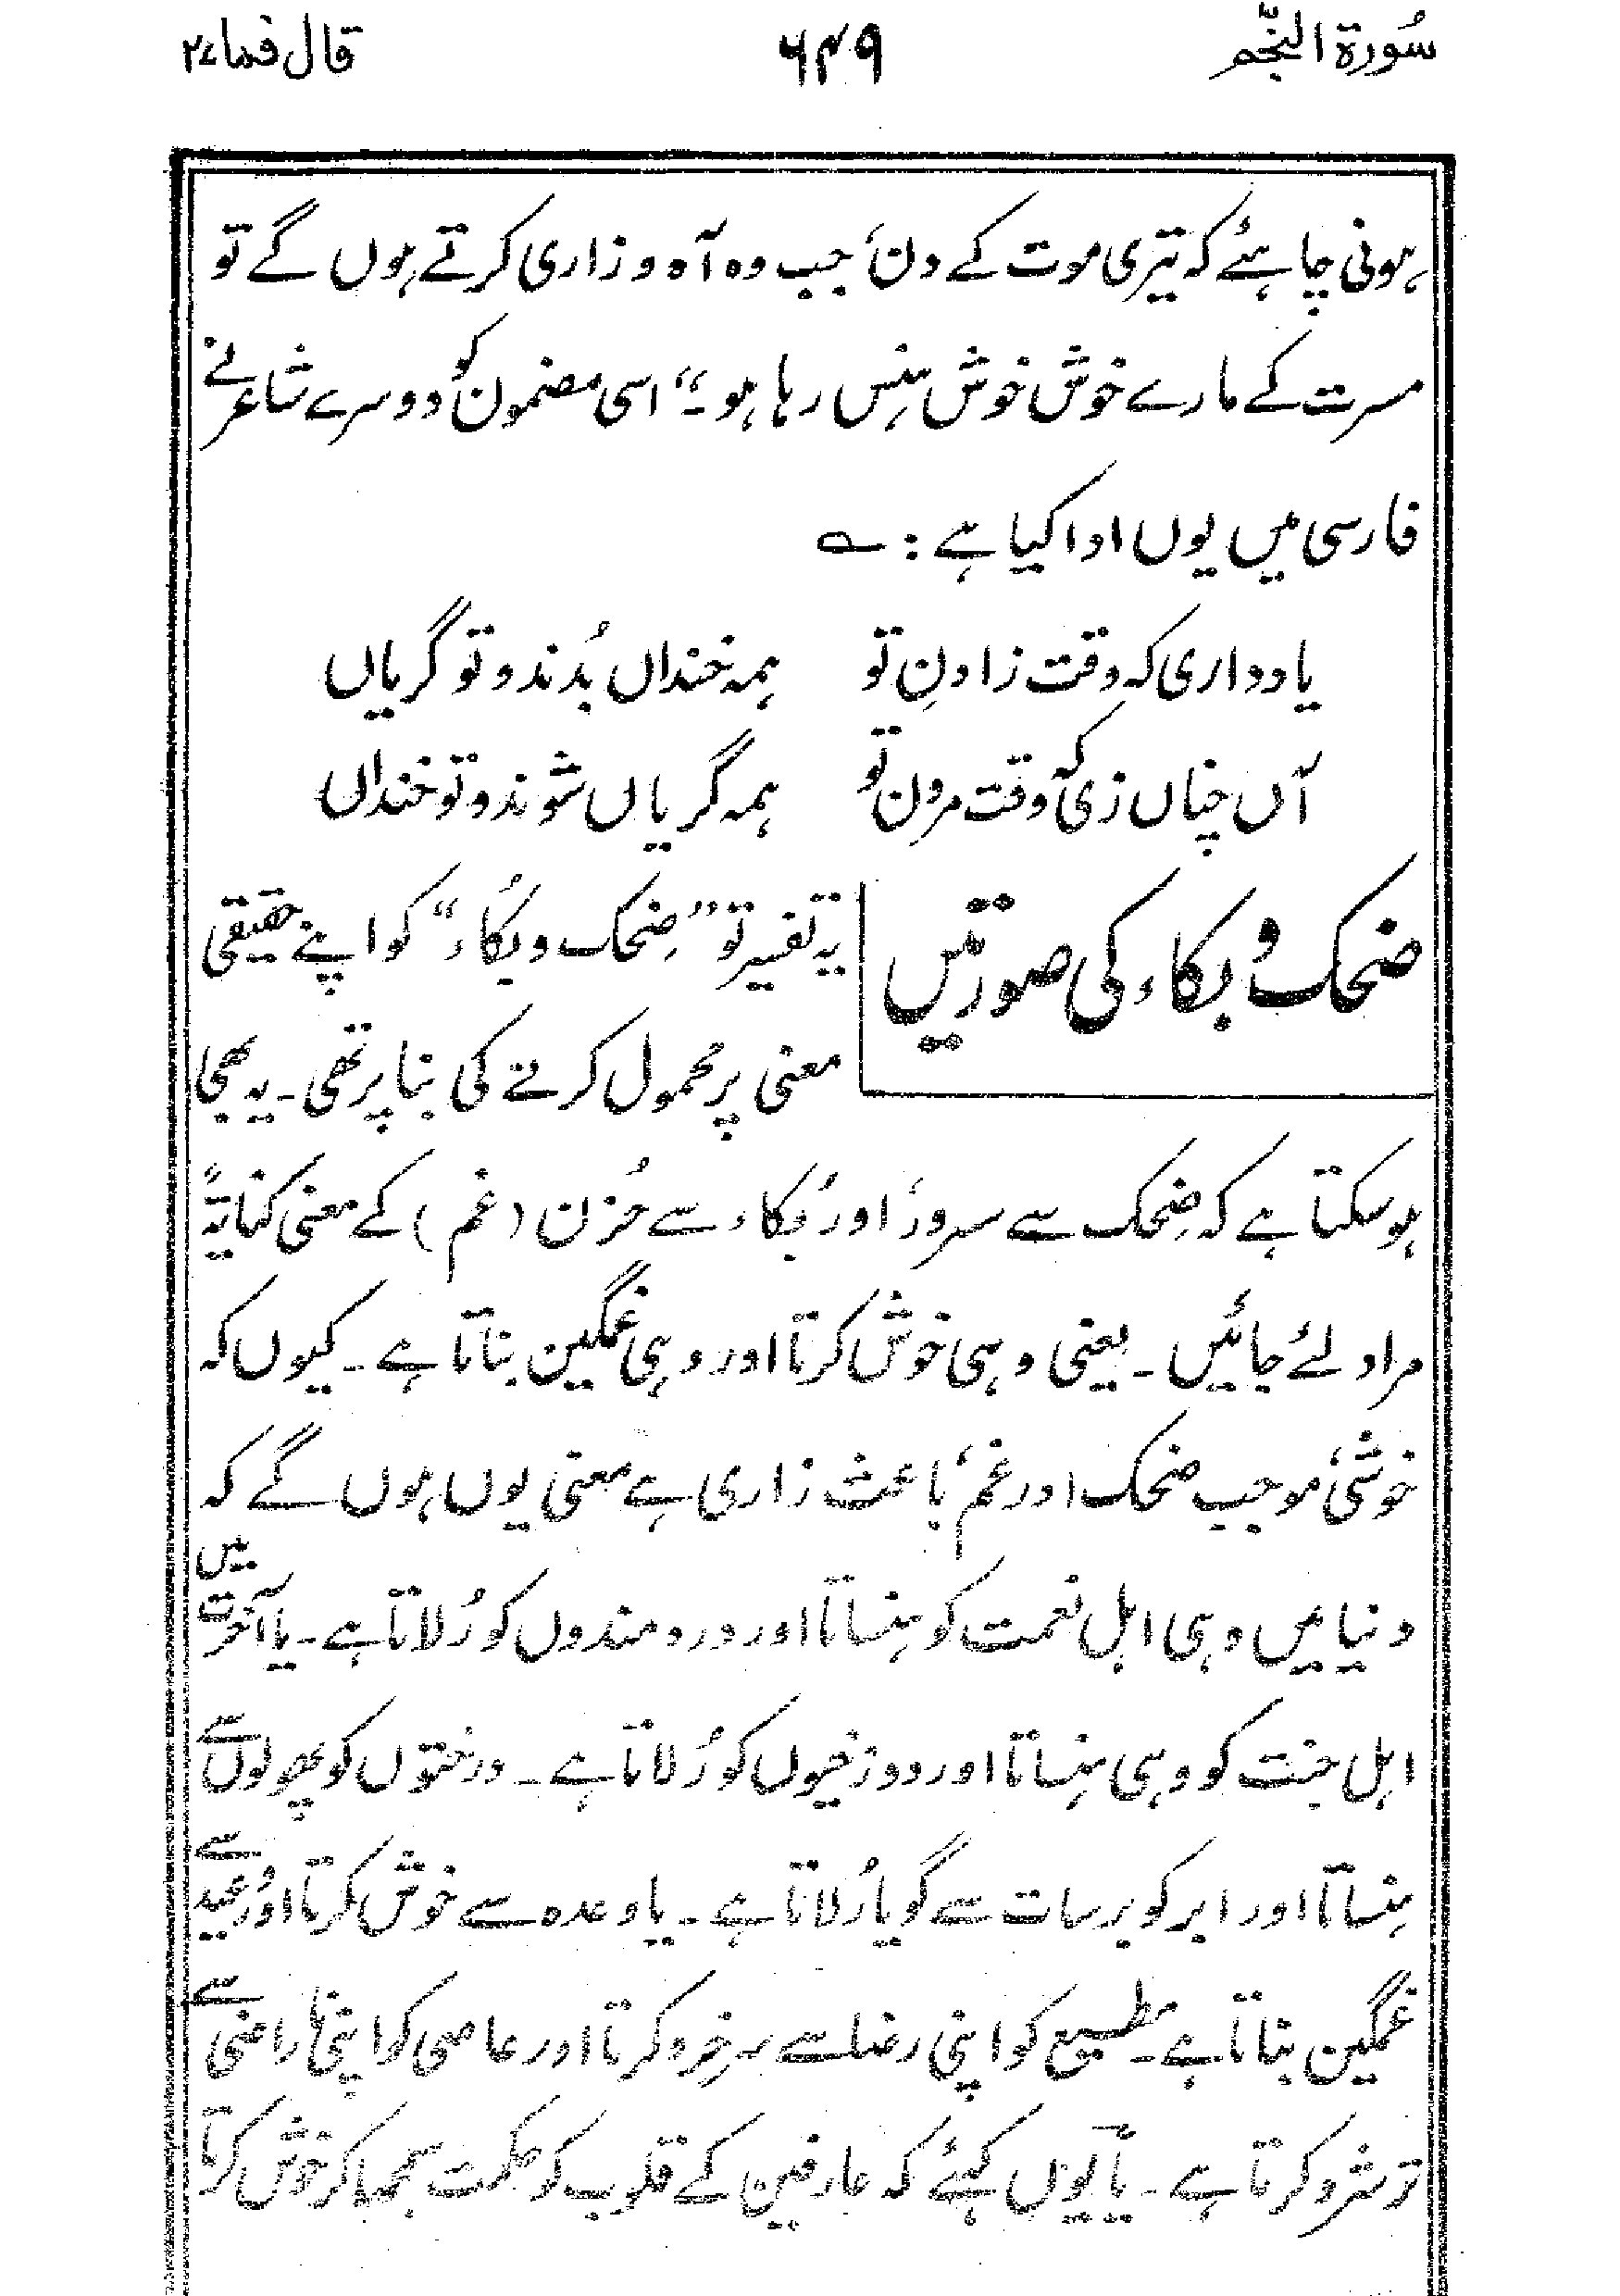 سُورة النّجم ۶۴۹ قال فما ۲۷
ہونی چاہئے کہ تیری موت کے دن، جب وہ آہ و زاری کرتے ہوں گے تو
مسرت کے مارے خوش خوش ہنس رہا ہو۔“ اسی مضمون کو دوسرے شاعر نے
فارسی میں یوں ادا کیا ہے : ؎
یاد داری کہ وقت زادنِ تو ہمہ خنداں بُدند و تو گریاں
آں چناں زی کہ وقت مردن تو ہمہ گریاں شوند و تو خنداں
ضحک و بکاء کی صورتیں
یہ تفسیر تو ”ضِحک و بکُاء“ کو اپنے حقیقی
معنی پر محمول کرنے کی بنا پر تھی۔ یہ بھی
ہو سکتا ہے کہ ضِحک سے سرور، اور بُکاء سے حُزن (غم) کے معنی کنایۃً
مراد لئے جائیں۔ یعنی وہی خوش کرتا اور وہی غمگین بناتا ہے۔ کیوں کہ
خوشی، موجب ضحک اور غم، باعث زاری ہے معنی یوں ہوں گے کہ
دنیا میں وہی اہل نعمت کو ہنساتا اور درد مندوں کو رُلاتا ہے۔ یا آخرت میں
اہل جنت کو وہی ہنساتا اور دوزخیوں کو رُلاتا ہے۔ درختوں کو پھولوں سے
ہنساتا اور ابر کو برسات سے گویا رُلاتا ہے۔ یا وعدہ سے خوش کرتا اور وعید سے
غمگین بناتا ہے۔ مطیع کو اپنی رضا سے سرخرو کرتا اور عاصی کو اپنی ناراضی سے
ترشرو کرتا ہے۔ یا یوں کہئے کہ عارفین کے قلوب کو حکمت سمجھا کر خوش کرتا